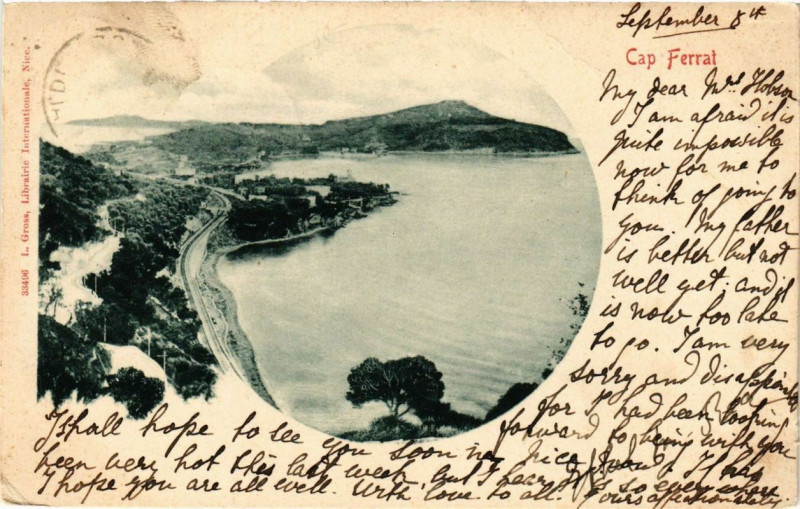 September 8th
Cap Ferrat
My dear Mrs Hobson
I am afraid it is
quite impossible
now for me to
think of going to
you. My father
is better but not
well yet; and it
is now too late
to go. I am very
sorry and disappointed
for I had been looking
forward to being with you
I shall hope to see you soon in Nice
It has
been very hot this last week, but I hear
is so everywhere
I hope you are all well. With love to all.
Yours affectionately
33496 L. Gross, Librairie Internationale, Nice.